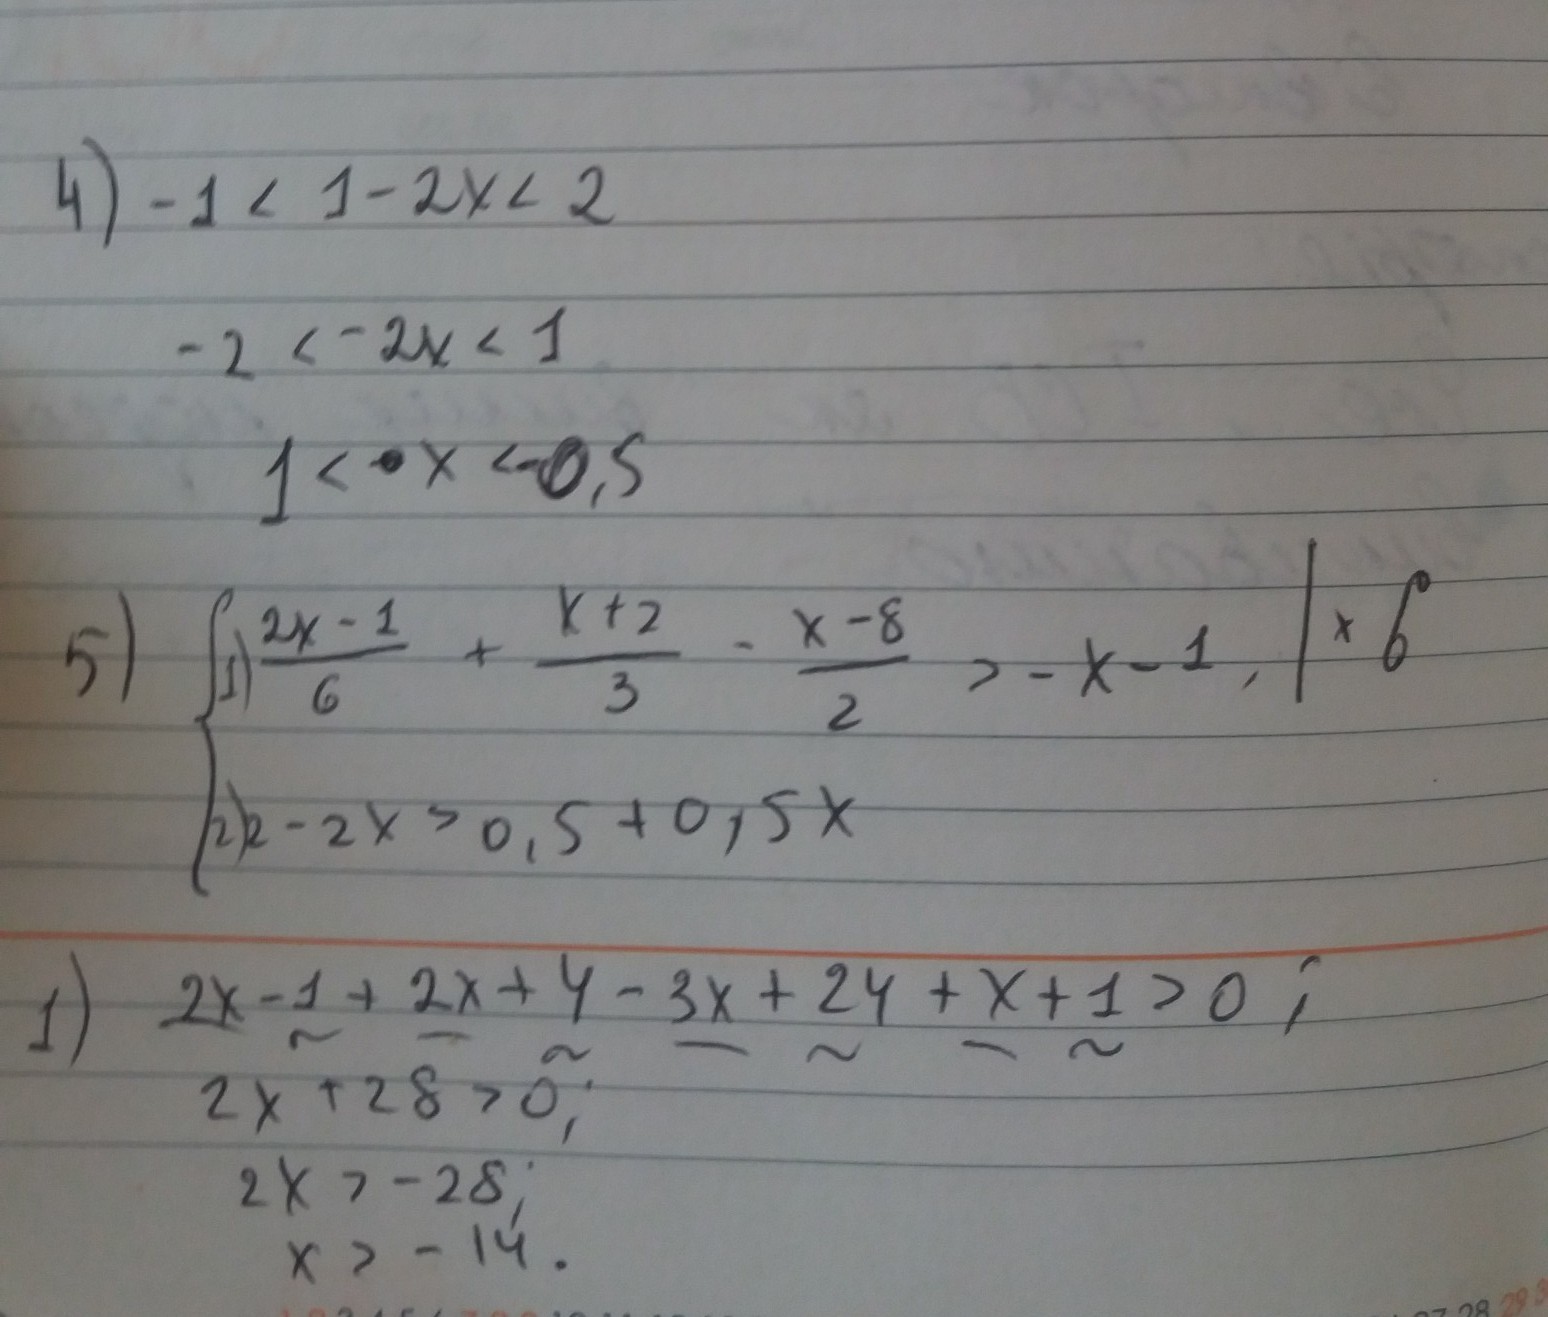 4) -1 < 1 - 2x < 2
-2 < -2x < 1
1 < x < -0,5
5) { 1) (2x-1)/6 + (x+2)/3 - (x-8)/2 > -x-1, | × 6
2) 2 - 2x > 0,5 + 0,5x
1) 2x - 1 + 2x + 4 - 3x + 24 + x + 1 > 0;
2x + 28 > 0;
2x > -28;
x > -14.